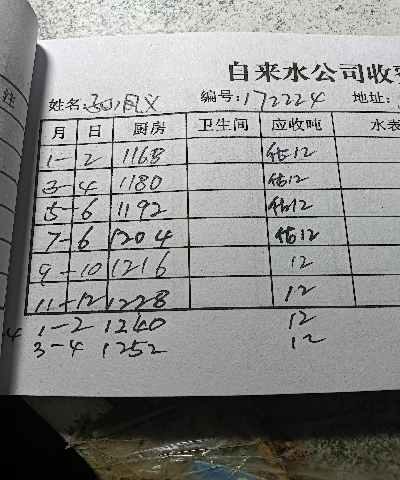 自来水公司收
姓名: 凤义 编号:172224 地址:
月 日 厨房 卫生间 应收吨 水表
1-2 1168 估12
3-4 1180 估12
5-6 1192 估12
7-6 1204 估12
9-10 1216 12
11-12 1228 12
1-2 1240 12
3-4 1252 12
注